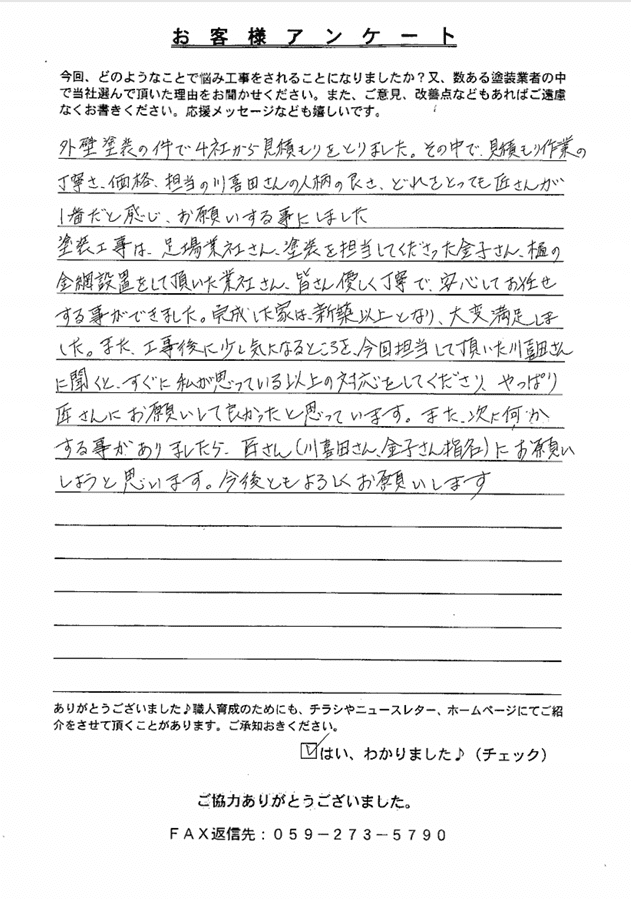 お客様アンケート
今回、どのようなことで悩み工事をされることになりましたか？又、数ある塗装業者の中
で当社選んで頂いた理由をお聞かせください。また、ご意見、改善点などもあればご遠慮
なくお書きください。応援メッセージなども嬉しいです。
外壁塗装の件で4社から見積もりをとりました。その中で、見積もり作業の
丁寧さ、価格、担当の川喜田さんの人柄の良さ、どれをとっても匠さんが
1番だと感じ、お願いする事にしました
塗装工事は、足場業社さん、塗装を担当してくださった金子さん、樋の
金網設置をして頂いた業社さん、皆さん優しく丁寧で、安心してお任せ
する事ができました。完成した家は、新築以上となり、大変満足しま
した。また、工事後に少し気になるところを、今回担当して頂いた川喜田さん
に聞くと、すぐに私が思っている以上の対応をしてくださり、やっぱり
匠さんにお願いして良かったと思っています。また、次に何か
する事がありましたら、匠さん(川喜田さん、金子さん指名)にお願い
しようと思います。今後ともよろしくお願いします
ありがとうございました♪職人育成のためにも、チラシやニュースレター、ホームページにてご紹
介をさせて頂くことがあります。ご承知おきください。
☑はい、わかりました♪（チェック）
ご協力ありがとうございました。
ＦＡＸ返信先：０５９－２７３－５７９０